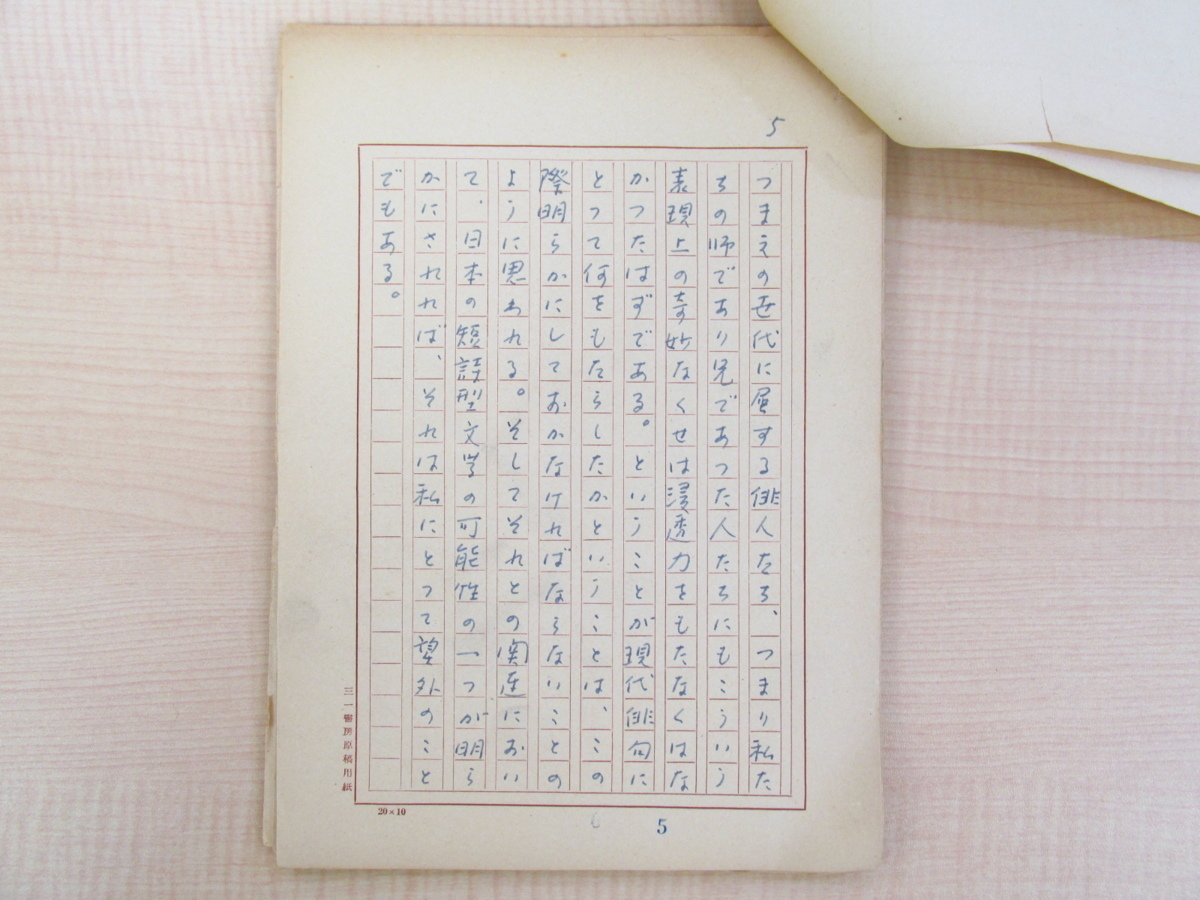 5
つまえの世代に属する俳人たち、つまり私た
ちの師であり兄であつた人たちにもこういう
表現上の奇妙なくせは浸透力をもたなくはな
かつたはずである。ということが現代俳句に
とつて何をもたらしたかということは、この
際明らかにしておかなければならないことの
ように思われる。そしてそれとの関連におい
て、日本の短詩型文学の可能性の一つが明ら
かにされれば、それは私にとつて望外のこと
でもある。
三一書房原稿用紙
20×10
6
5